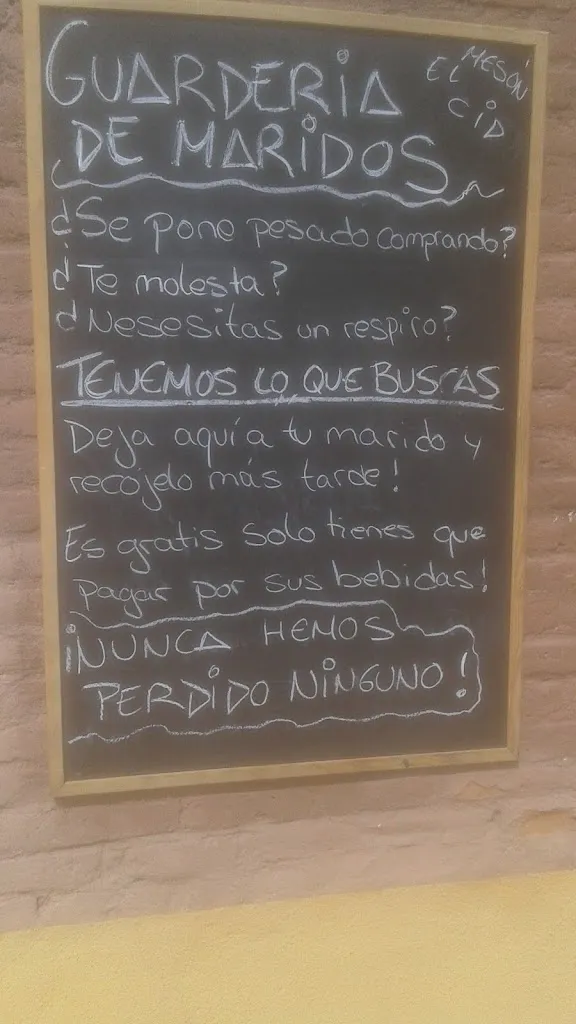 GUARDERIA
DE MARIDOS
MESÓN
EL CID
¿Se pone pesado comprando?
¿Te molesta?
¿Nesesitas un respiro?
TENEMOS LO QUE BUSCAS
Deja aquí a tu marido y
recojelo más tarde!
Es gratis solo tienes que
pagar por sus bebidas!
¡NUNCA HEMOS
PERDIDO NINGUNO!